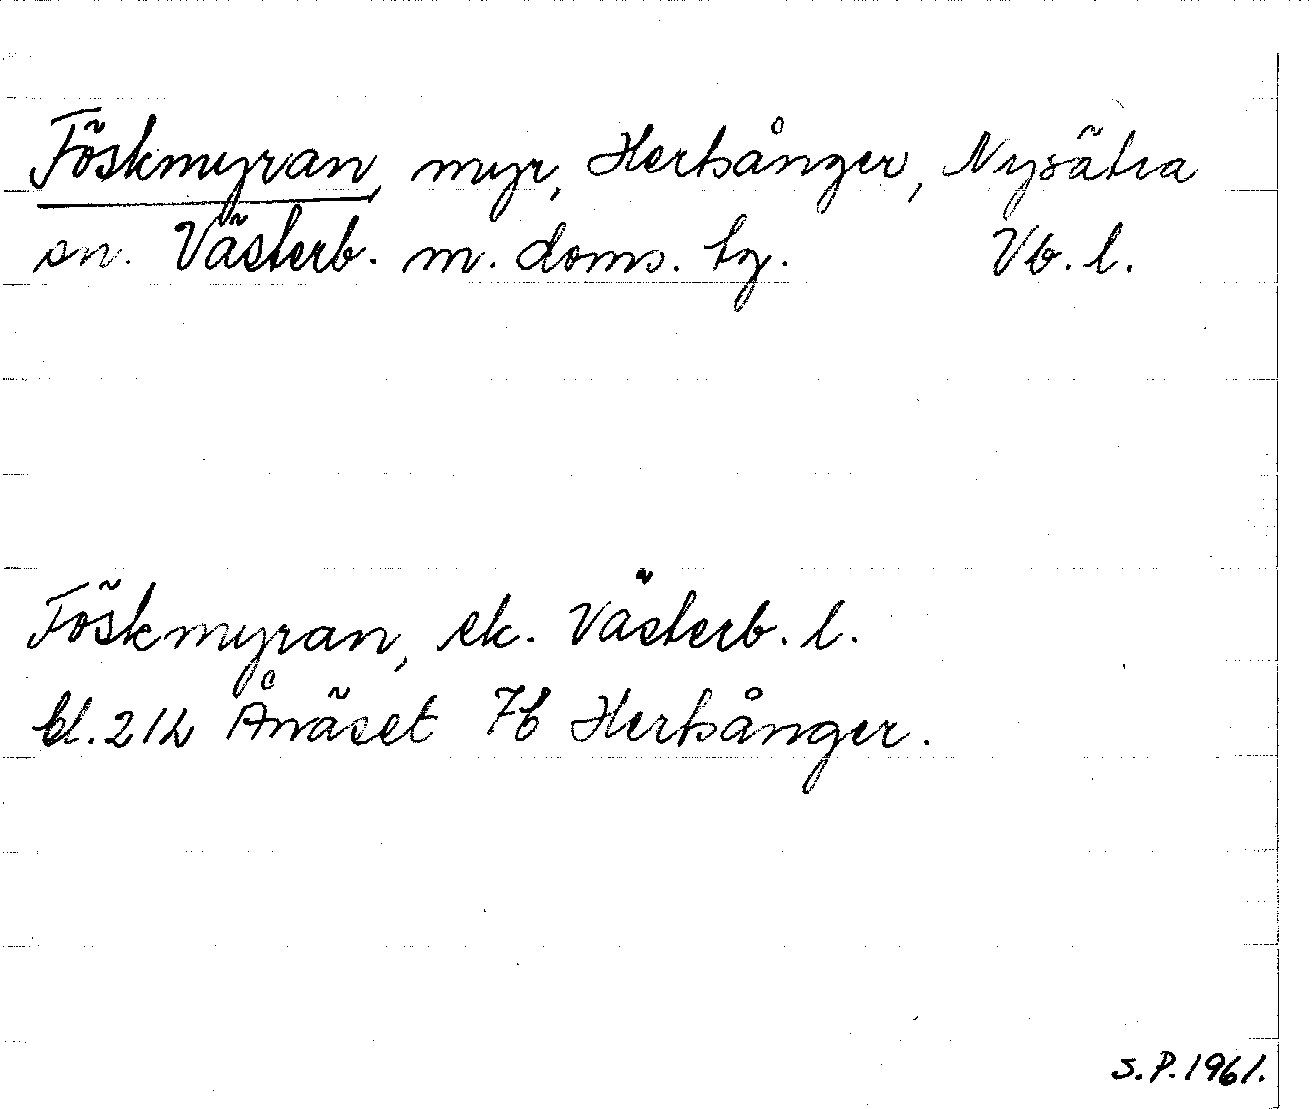 Töskmyran, myr, Hertsånger, Nysätra
sn. Västerb. m. doms. tg. Vb. l.
Töskmyran, ek. Västerb. l.
bl. 21h Ånäset 7b Hertsånger.
S.P. 1961.